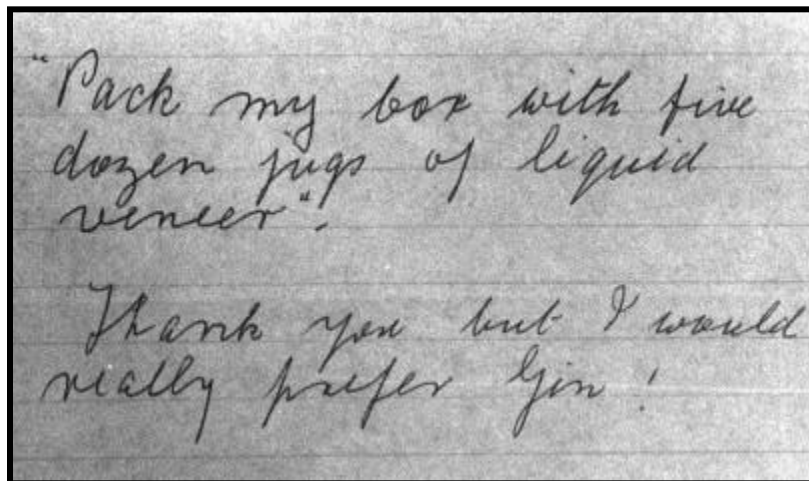 "Pack my box with five
dozen jugs of liquid
veneer".
Thank you but I would
really prefer Gin!